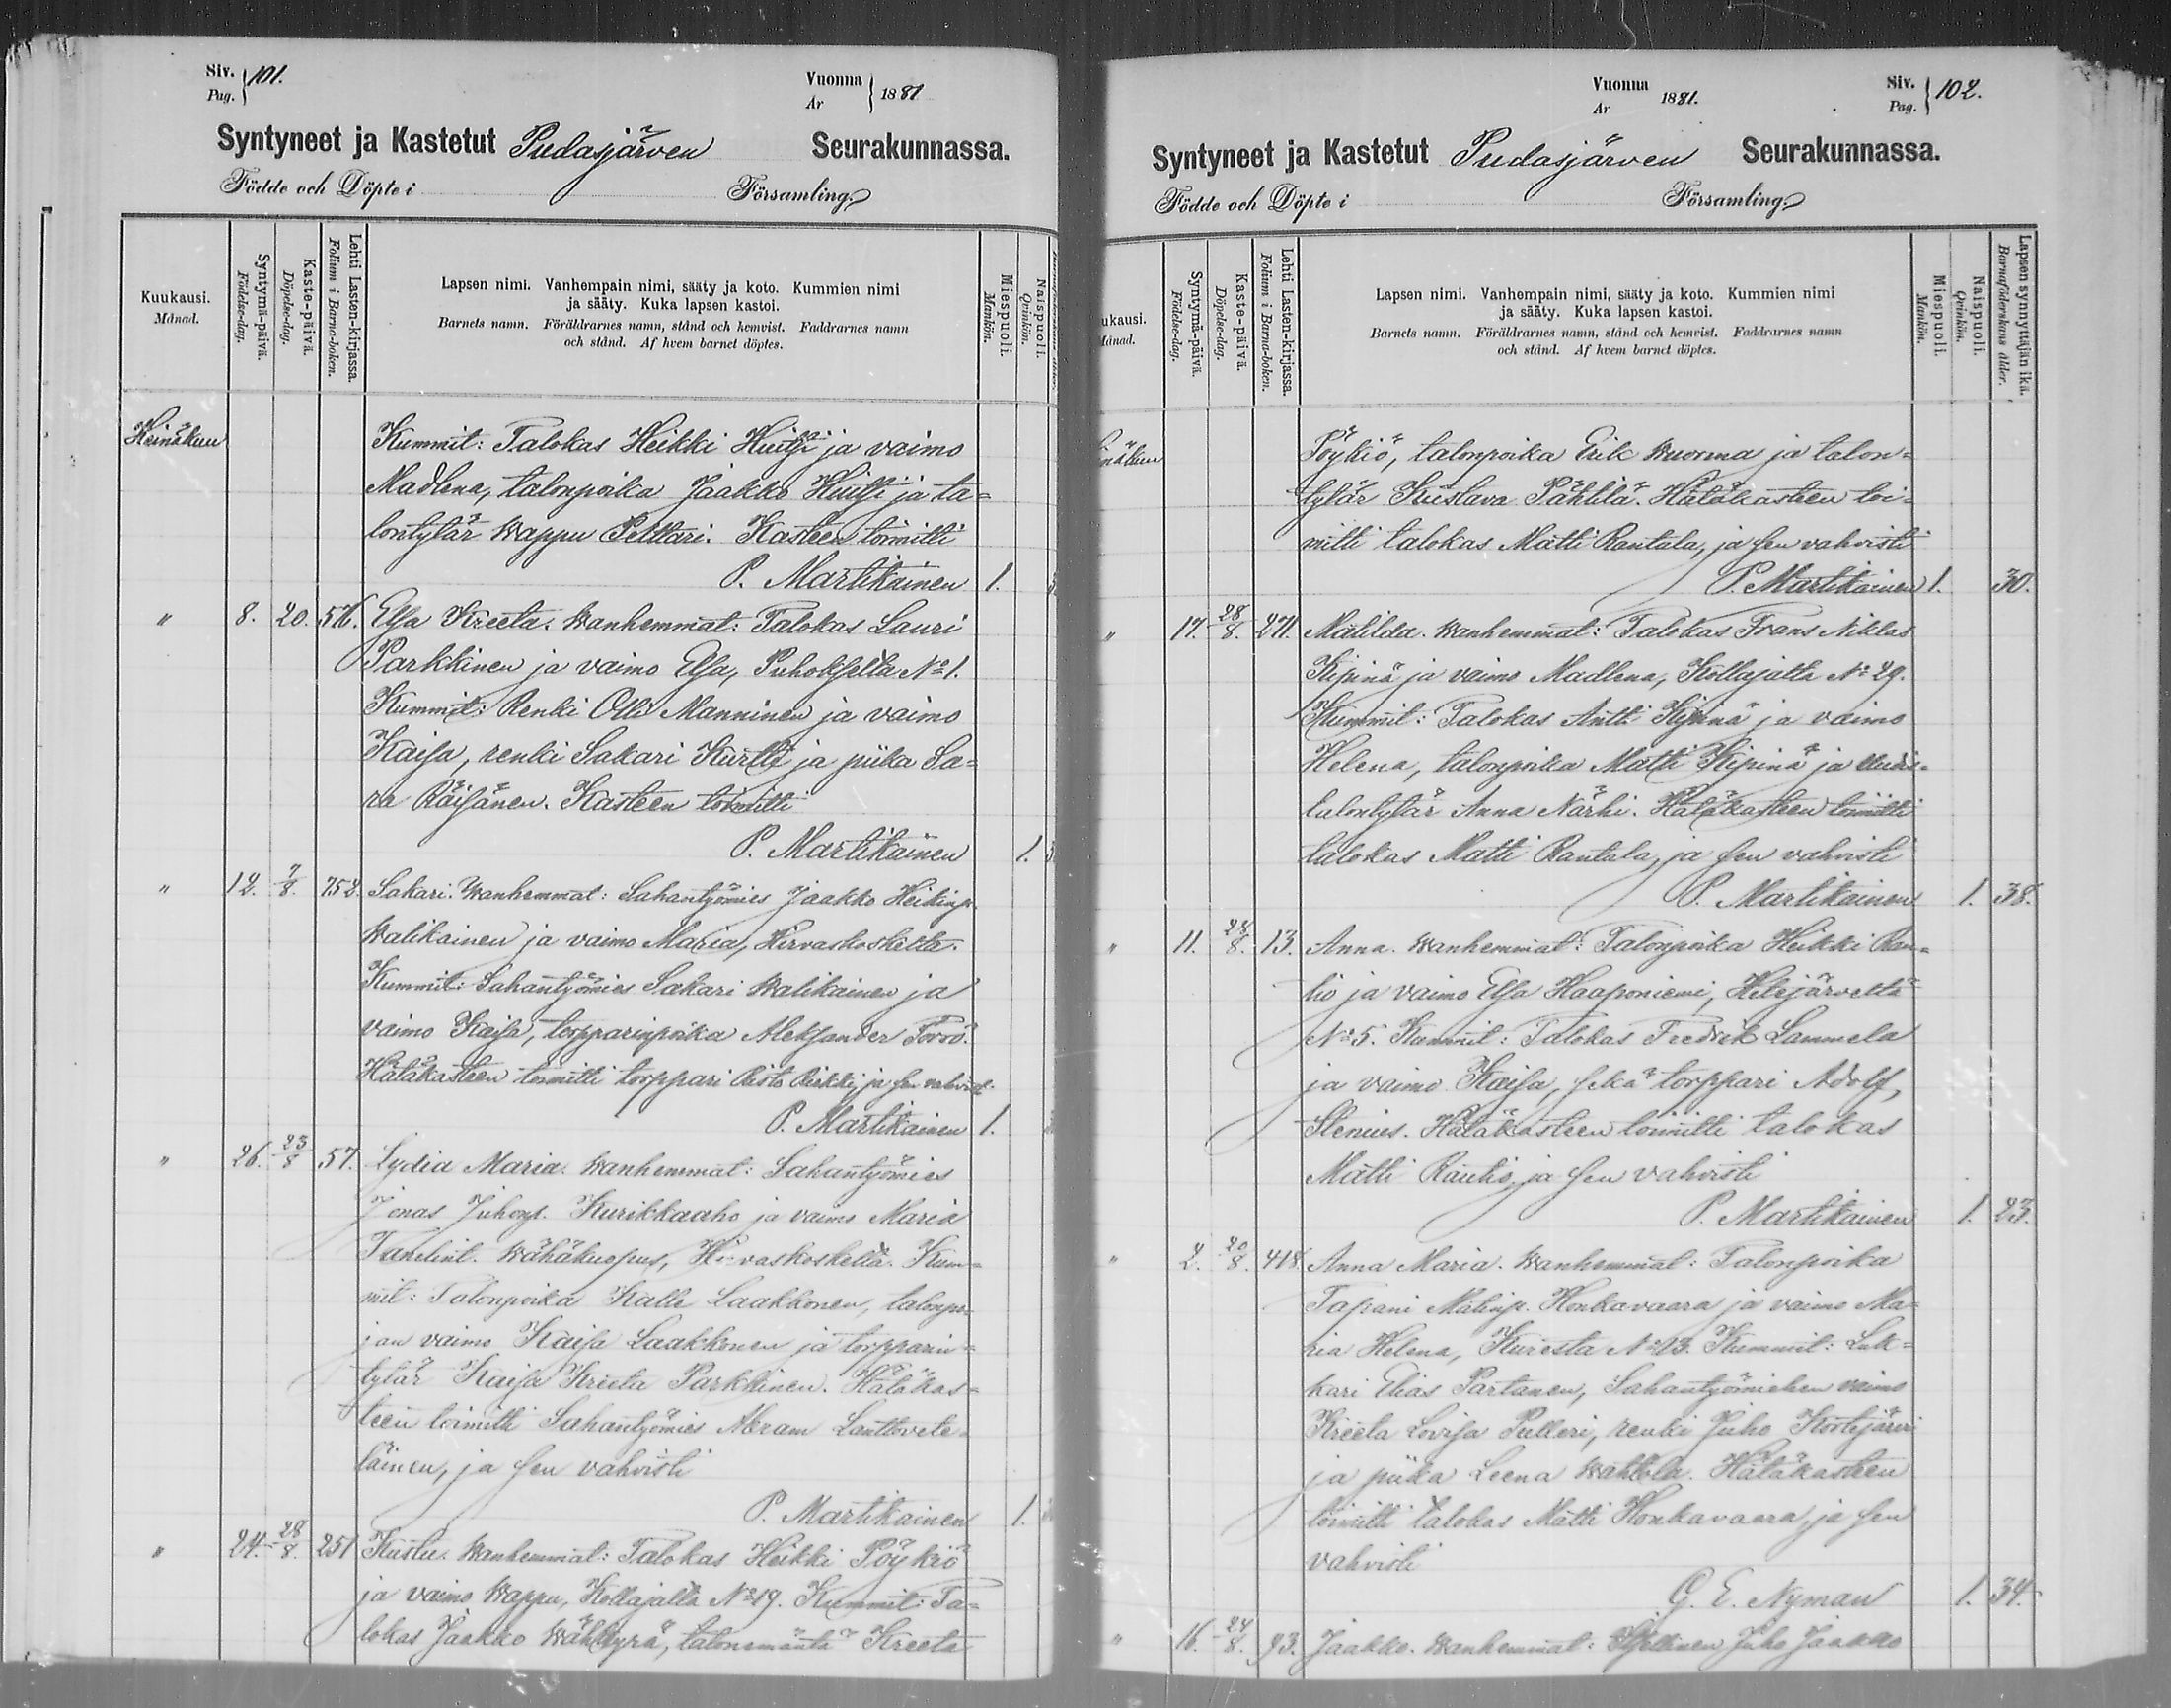 Siv. Pag. 101.
Vuonna År 1881
Syntyneet ja Kastetut Pudasjärven Seurakunnassa.
Födde och Döpte i Församling.
Kuukausi. Månad.
Syntymä-päivä. Födelse-dag.
Kaste-päivä. Döpelse-dag.
Lehti Lasten-kirjassa. Folium i Barna-boken.
Lapsen nimi. Vanhempain nimi, sääty ja koto. Kummien nimi
ja sääty. Kuka lapsen kastoi.
Barnets namn. Föräldrarnes namn, stånd och hemvist. Faddrarnes namn
och stånd. Af hvem barnet döptes.
Miespuoli. Mankön.
Naispuoli. Qvinkön.
Heinäkuu Kummit: Talokas Heikki ja vaimo
Madlena, talonpoika Jaakko ja ta=
lontytär Wappu Pettari. Kasteen toimitti
P. Martikainen 1.
" 8. 20. 576. Elsa Kreeta. Wanhemmat: Talokas Lauri
Parkkinen ja vaimo Elsa, Puhokselta No 1.
Kummit: Renki Olli Manninen ja vaimo
Kaisa, renki Sakari Kurtti ja piika Sa=
ra Räisänen. Kasteen toimitti
P. Martikainen 1.
" 12. 7/8. 752. Sakari. Wanhemmat: Sahantyömies Jaakko Heikinp.
Walikainen ja vaimo Maria, Hirvaskoskelta.
Kummit: Sahantyömies Sakari Walikainen ja
vaimo Kaisa, torpparinpoika Aleksander
Hätäkasteen toimitti torppari Risto ja sen vahvist.
P. Martikainen 1.
" 26. 23/8 57. Lydia Maria. Wanhemmat: Sahantyömies
Jonas Juhonp. Kurikkaaho ja vaimo Maria
Wähäkuopus, Hirvaskoskelta. Kum=
mit: Talonpoika Kalle Laakkonen, talonpo=
jan vaimo Kaisa Laakkonen ja torpparin=
tytär Kaisa Kreeta Parkkinen. Hätäkas=
teen toimitti Sahantyömies Abram
läinen, ja sen vahvisti
P. Martikainen 1.
" 24. 28/8. 251 Kustu. Wanhemmat: Talokas Heikki Pöykiö
ja vaimo Wappu, Kollajalta No 19. Kummit: Ta=
lokas Jaakko Wähkyrä, talonemäntä Kreeta
Vuonna År 1881.
Siv. Pag. 102.
Syntyneet ja Kastetut Pudasjärven Seurakunnassa.
Födde och Döpte i Församling.
ukausi. Månad.
Syntymä-päivä. Födelse-dag.
Kaste-päivä. Döpelse-dag.
Lehti Lasten-kirjassa. Folium i Barna-boken.
Lapsen nimi. Vanhempain nimi, sääty ja koto. Kummien nimi
ja sääty. Kuka lapsen kastoi.
Barnets namn. Föräldrarnes namn, stånd och hemvist. Faddrarnes namn
och stånd. Af hvem barnet döptes.
Miespuoli. Mankön.
Naispuoli. Qvinkön.
Lapsensynnyttäjän ikä. Barnaföderskans ålder.
Pöykiö, talonpoika Erik Wuorma ja talon=
tytär Kustava Pähtilä. Hätäkasteen toi=
mitti talokas Matti Rantala, ja sen vahvisti
P. Martikainen 1. 30.
" 17. 28/8. 271. Matilda. Wanhemmat: Talokas Frans Niklas
Kipinä ja vaimo Madlena, Kollajalta No 29.
Kummit: Talokas Antti Kipinä ja vaimo
Helena, talonpoika Matti Kipinä ja Uudis=
talontytär Anna Närhi. Hätäkasteen toimitti
talokas Matti Rantala, ja sen vahvisti
P. Martikainen 1. 38.
" 11. 28/8. 13. Anna. Wanhemmat: Talonpoika Heikki Rau=
tio ja vaimo Elsa Haaponiemi, Hetejärveltä
No 5. Kummit: Talokas Fredrik Lammela
ja vaimo Kaisa, sekä torppari Adolf
Stenius. Hätäkasteen toimitti talokas
Matti Rautio, ja sen vahvisti
P. Martikainen 1. 23.
" 2. 20/8. 418. Anna Maria. Wanhemmat: Talonpoika
Tapani Matinp. Honkavaara ja vaimo Ma=
ria Helena, Kuresta No 13. Kummit: Luk=
kari Elias Partanen, Sahantyömiehen vaimo
Kreeta Lovisa Pulleri, renki Juho Kostejärvi
ja piika Leena Wahtola. Hätäkasteen
toimitti talokas Matti Honkavaara, ja sen
vahvisti
G. E. Nyman 1. 34.
" 16. 24/8. 93. Jaakko. Wanhemmat: Itsellinen Juho Jaakko